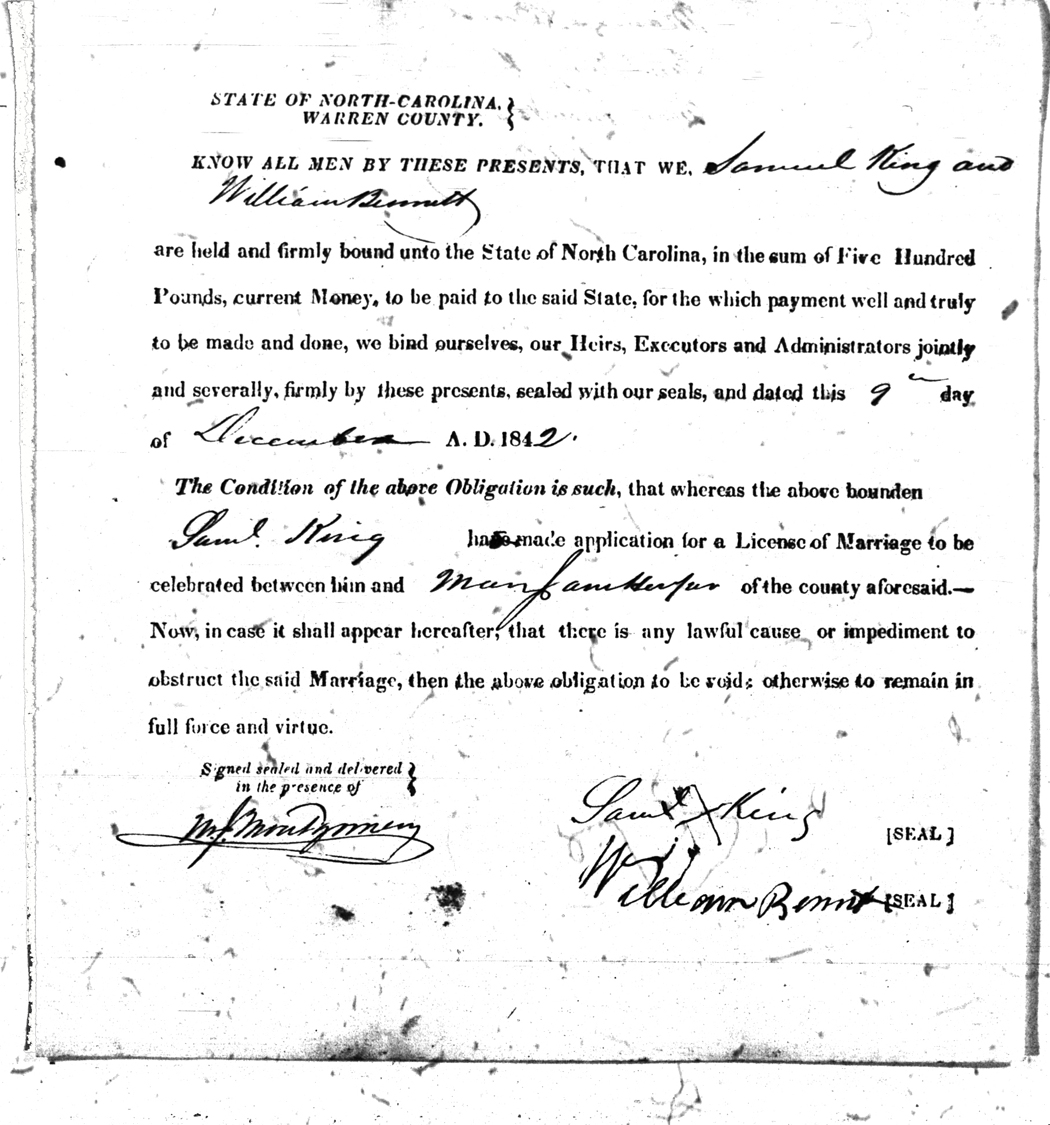 STATE OF NORTH-CAROLINA,
WARREN COUNTY.
KNOW ALL MEN BY THESE PRESENTS, THAT WE, Samuel King and
William Bennett
are held and firmly bound unto the State of North Carolina, in the sum of Five Hundred
Pounds, current Money, to be paid to the said State, for the which payment well and truly
to be made and done, we bind ourselves, our Heirs, Executors and Administrators jointly
and severally, firmly by these presents, sealed with our seals, and dated this 9th day
of December A. D. 1842.
The Condition of the above Obligation is such, that whereas the above bounden
Saml. King has made application for a License of Marriage to be
celebrated between him and Mary Jane of the county aforesaid.—
Now, in case it shall appear hereafter, that there is any lawful cause or impediment to
obstruct the said Marriage, then the above obligation to be void; otherwise to remain in
full force and virtue.
Signed sealed and delivered
in the presence of
M. J. Montgomery
Saml X King [SEAL]
William Bennett [SEAL]